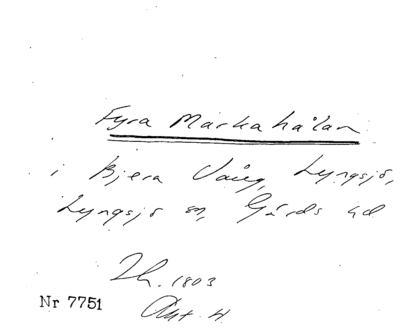 Fyra Markahålan
i Bjera Vång, Lyngsjö,
Lyngsjö sn, Gärds hd
Lh. 1803
Nr 7751
Akt 4